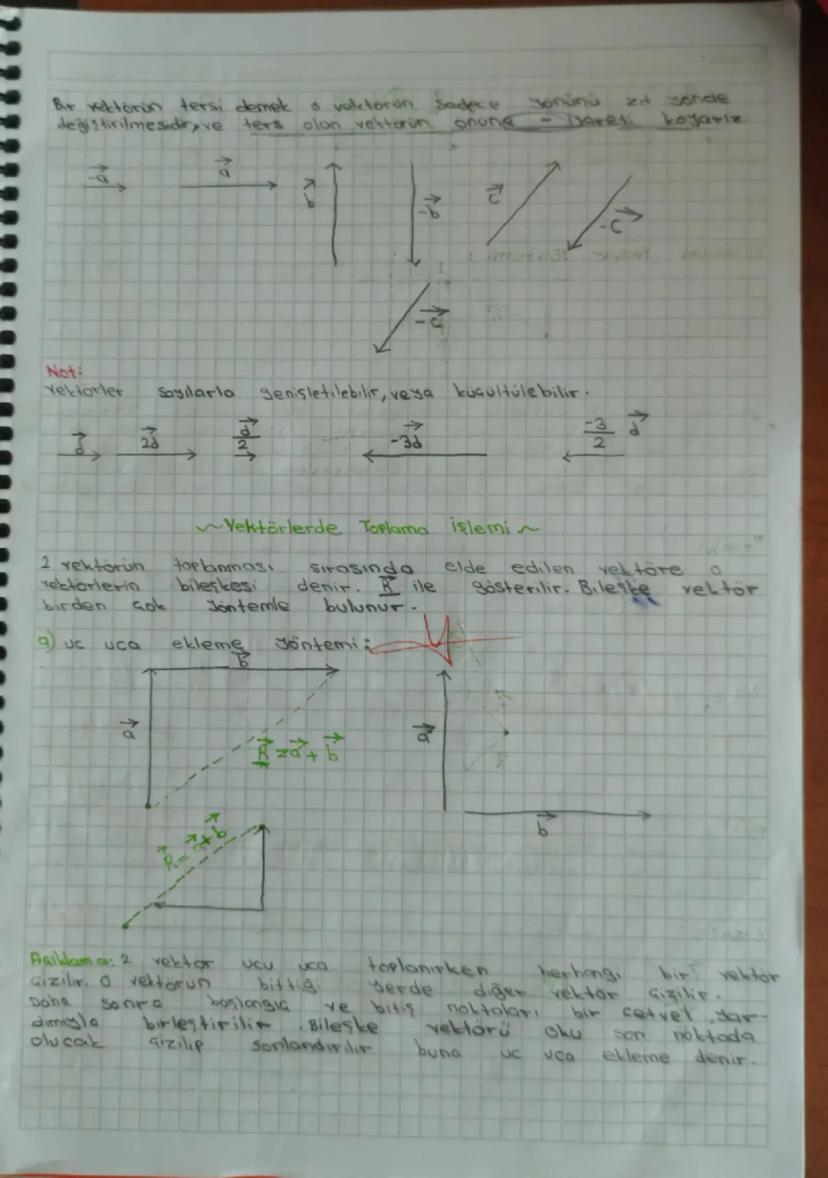 Bir vektörün tersi demek o vektörün sadece yönünü zıt yönde
değiştirilmesidir, ve ters olan vektörün önüne - işareti koyarız
-a a b -b c -c
-a
Not:
Vektörler sayılarla genişletilebilir, veya küçültülebilir.
d 2d d/2 -3d -3/2 d
~Vektörlerde Toplama işlemi~
2 vektörün toplanması sırasında elde edilen vektöre o
vektörlerin bileşkesi denir. R ile gösterilir. Bileşke vektör
birden çok yöntemle bulunur.
a) uc uca ekleme yöntemi:
b
a R = a + b a
b
R = a + b
Açıklama: 2 vektör ucu uca toplanırken herhangi bir vektör
çizilir. O vektörün bittiği yerde diğer vektör çizilir.
Daha sonra başlangıç ve bitiş noktaları bir cetvel yar-
dımıyla birleştirilir. Bileşke vektörü oku son noktada
olucak çizilip sonlandırılır buna uc uca ekleme denir.